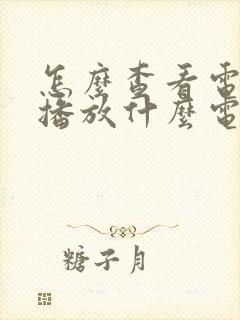 怎麼查看電
播放什麼電
糖子月